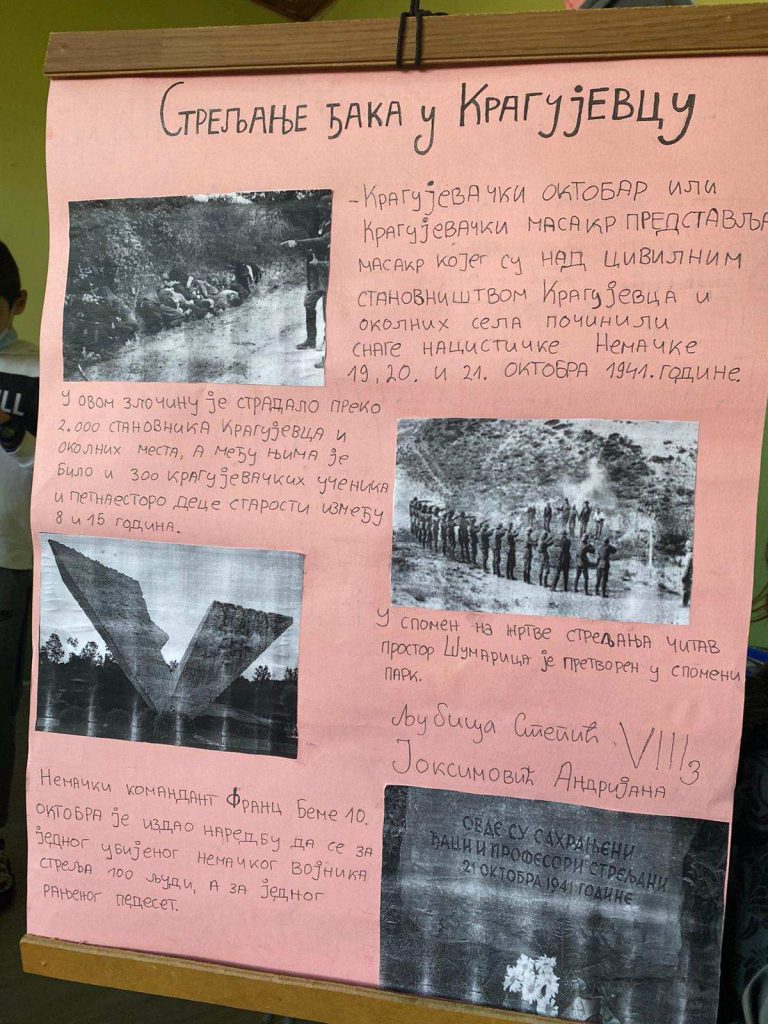 Стрељање ђака у Крагујевцу
- Крагујевачки октобар или
Крагујевачки масакр представља
масакр којег су над цивилним
становништвом Крагујевца и
околних села починили
снаге нацистичке Немачке
19, 20. и 21. октобра 1941. године.
У овом злочину је страдало преко
2.000 становника Крагујевца и
околних места, а међу њима је
било и 300 крагујевачких ученика
и петнаесторо деце старости између
8 и 15 година.
У спомен на жртве стрељања читав
простор Шумарица је претворен у спомени
парк.
Љубица Степић VIII3
Јоксимовић Андријана
Немачки командант Франц Беме 10.
октобра је издао наредбу да се за
једног убијеног немачког војника
стреља 100 људи, а за једног
рањеног педесет.
ОВДЕ СУ САХРАЊЕНИ
ЂАЦИ И ПРОФЕСОРИ СТРЕЉАНИ
21 ОКТОБРА 1941 ГОДИНЕ
LL